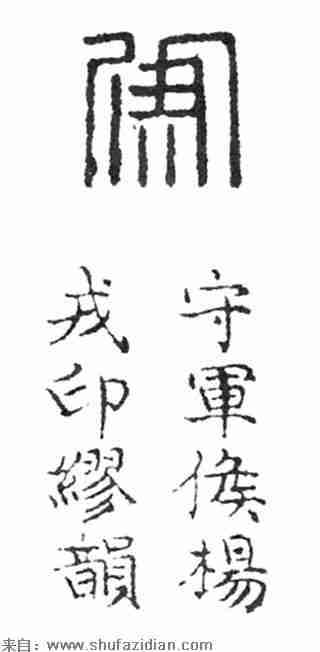 守軍候楊
戎印繆韻
来自：www.shufazidian.com